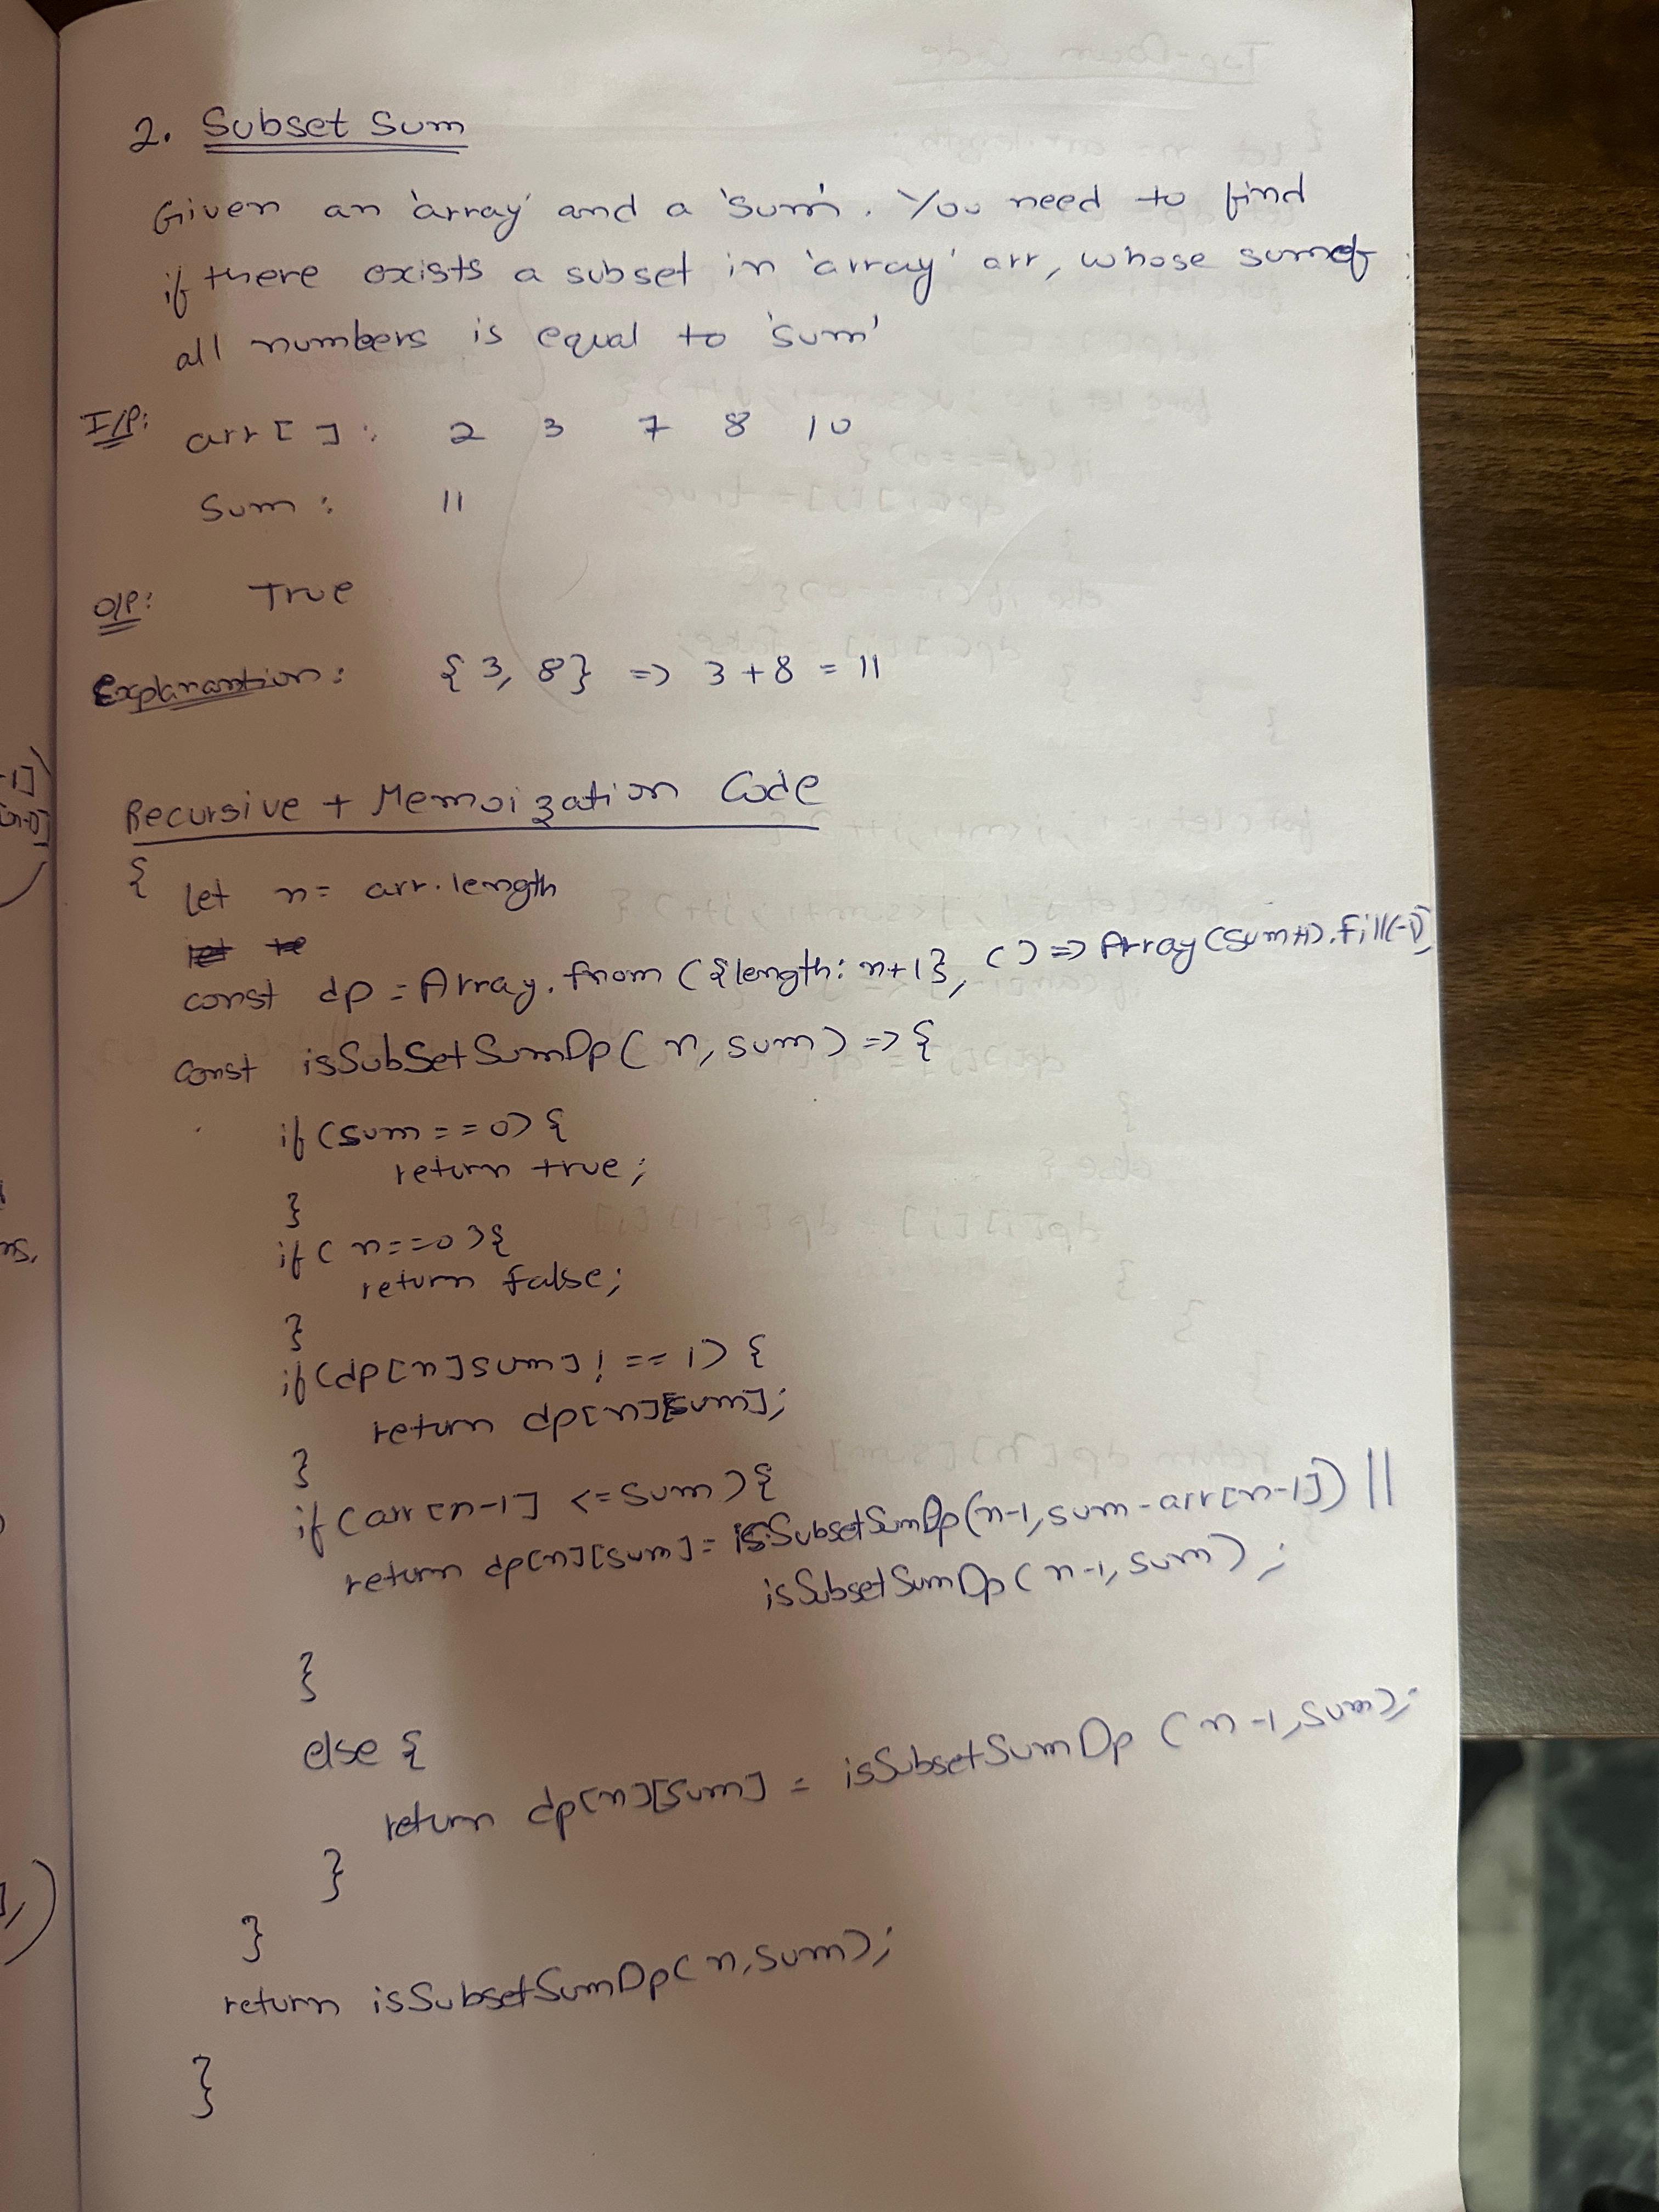 2. Subset Sum
Given an 'array' and a 'sum'. You need to find
if there exists a subset in 'array' arr, whose sum of
all numbers is equal to 'sum'
I/P: arr[ ]: 2 3 7 8 10
Sum: 11
O/P: True
Explanantion: {3, 8} => 3+8 = 11
Recursive + Memoization Code
{
let n= arr.length
const dp = Array.from({length: n+1}, () => Array(sum+1).fill(-1)
const isSubSetSumDp( n, sum) => {
if (sum==0) {
return true;
}
if ( n==0){
return false;
}
if(dp[n]sum]!==1) {
return dp[n][sum];
}
if(arr[n-1] <=sum){
return dp[n][sum]= isSubsetSumDp(n-1,sum-arr[n-1]) ||
isSubsetSumDp(n-1,sum);
}
else {
return dp[n][sum] = isSubsetSumDp (n-1,sum);
}
}
return isSubsetSumDp(n,sum);
}